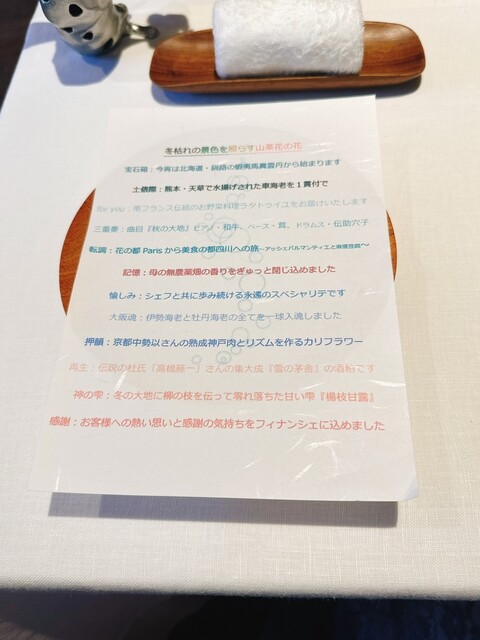 冬枯れの景色を照らす山茶花の花
宝石箱：今宵は北海道・釧路の蝦夷馬糞雲丹から始まります
土俵際：熊本・天草で水揚げされた車海老を１貫付で
for you：南フランス伝統のお野菜料理ラタトゥイユをお届けいたします
三重奏：曲目『秋の大地』ピアノ・和牛、ベース・茸、ドラムス・伝助穴子
転調：花の都 Paris から美食の都四川への旅～アッシェパルマンティエと麻婆豆腐～
記憶：母の無農薬畑の香りをぎゅっと閉じ込めました
愉しみ：シェフと共に歩み続ける永遠のスペシャリテです
大阪魂：伊勢海老と牡丹海老の全てを一球入魂しました
押韻：京都中勢以さんの熟成神戸肉とリズムを作るカリフラワー
再生：伝説の杜氏「高橋藤一」さんの集大成『雪の茅舎』の酒粕です
神の雫：冬の大地に柳の枝を伝って零れ落ちた甘い雫『楊枝甘露』
感謝：お客様への熱い思いと感謝の気持ちをフィナンシェに込めました